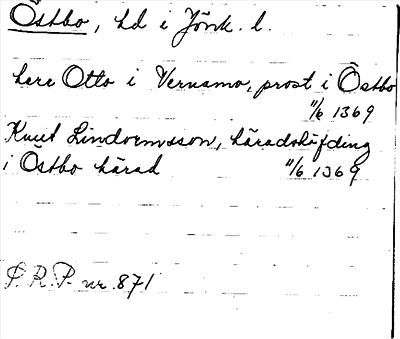 Östbo, hd i Jönk. l.
here Otto i Vernamo, prost i Östbo
11/6 1369
Knut Lindormsson, häradshöfding
i Östbo härad 11/6 1369
S. R. P. nr 871